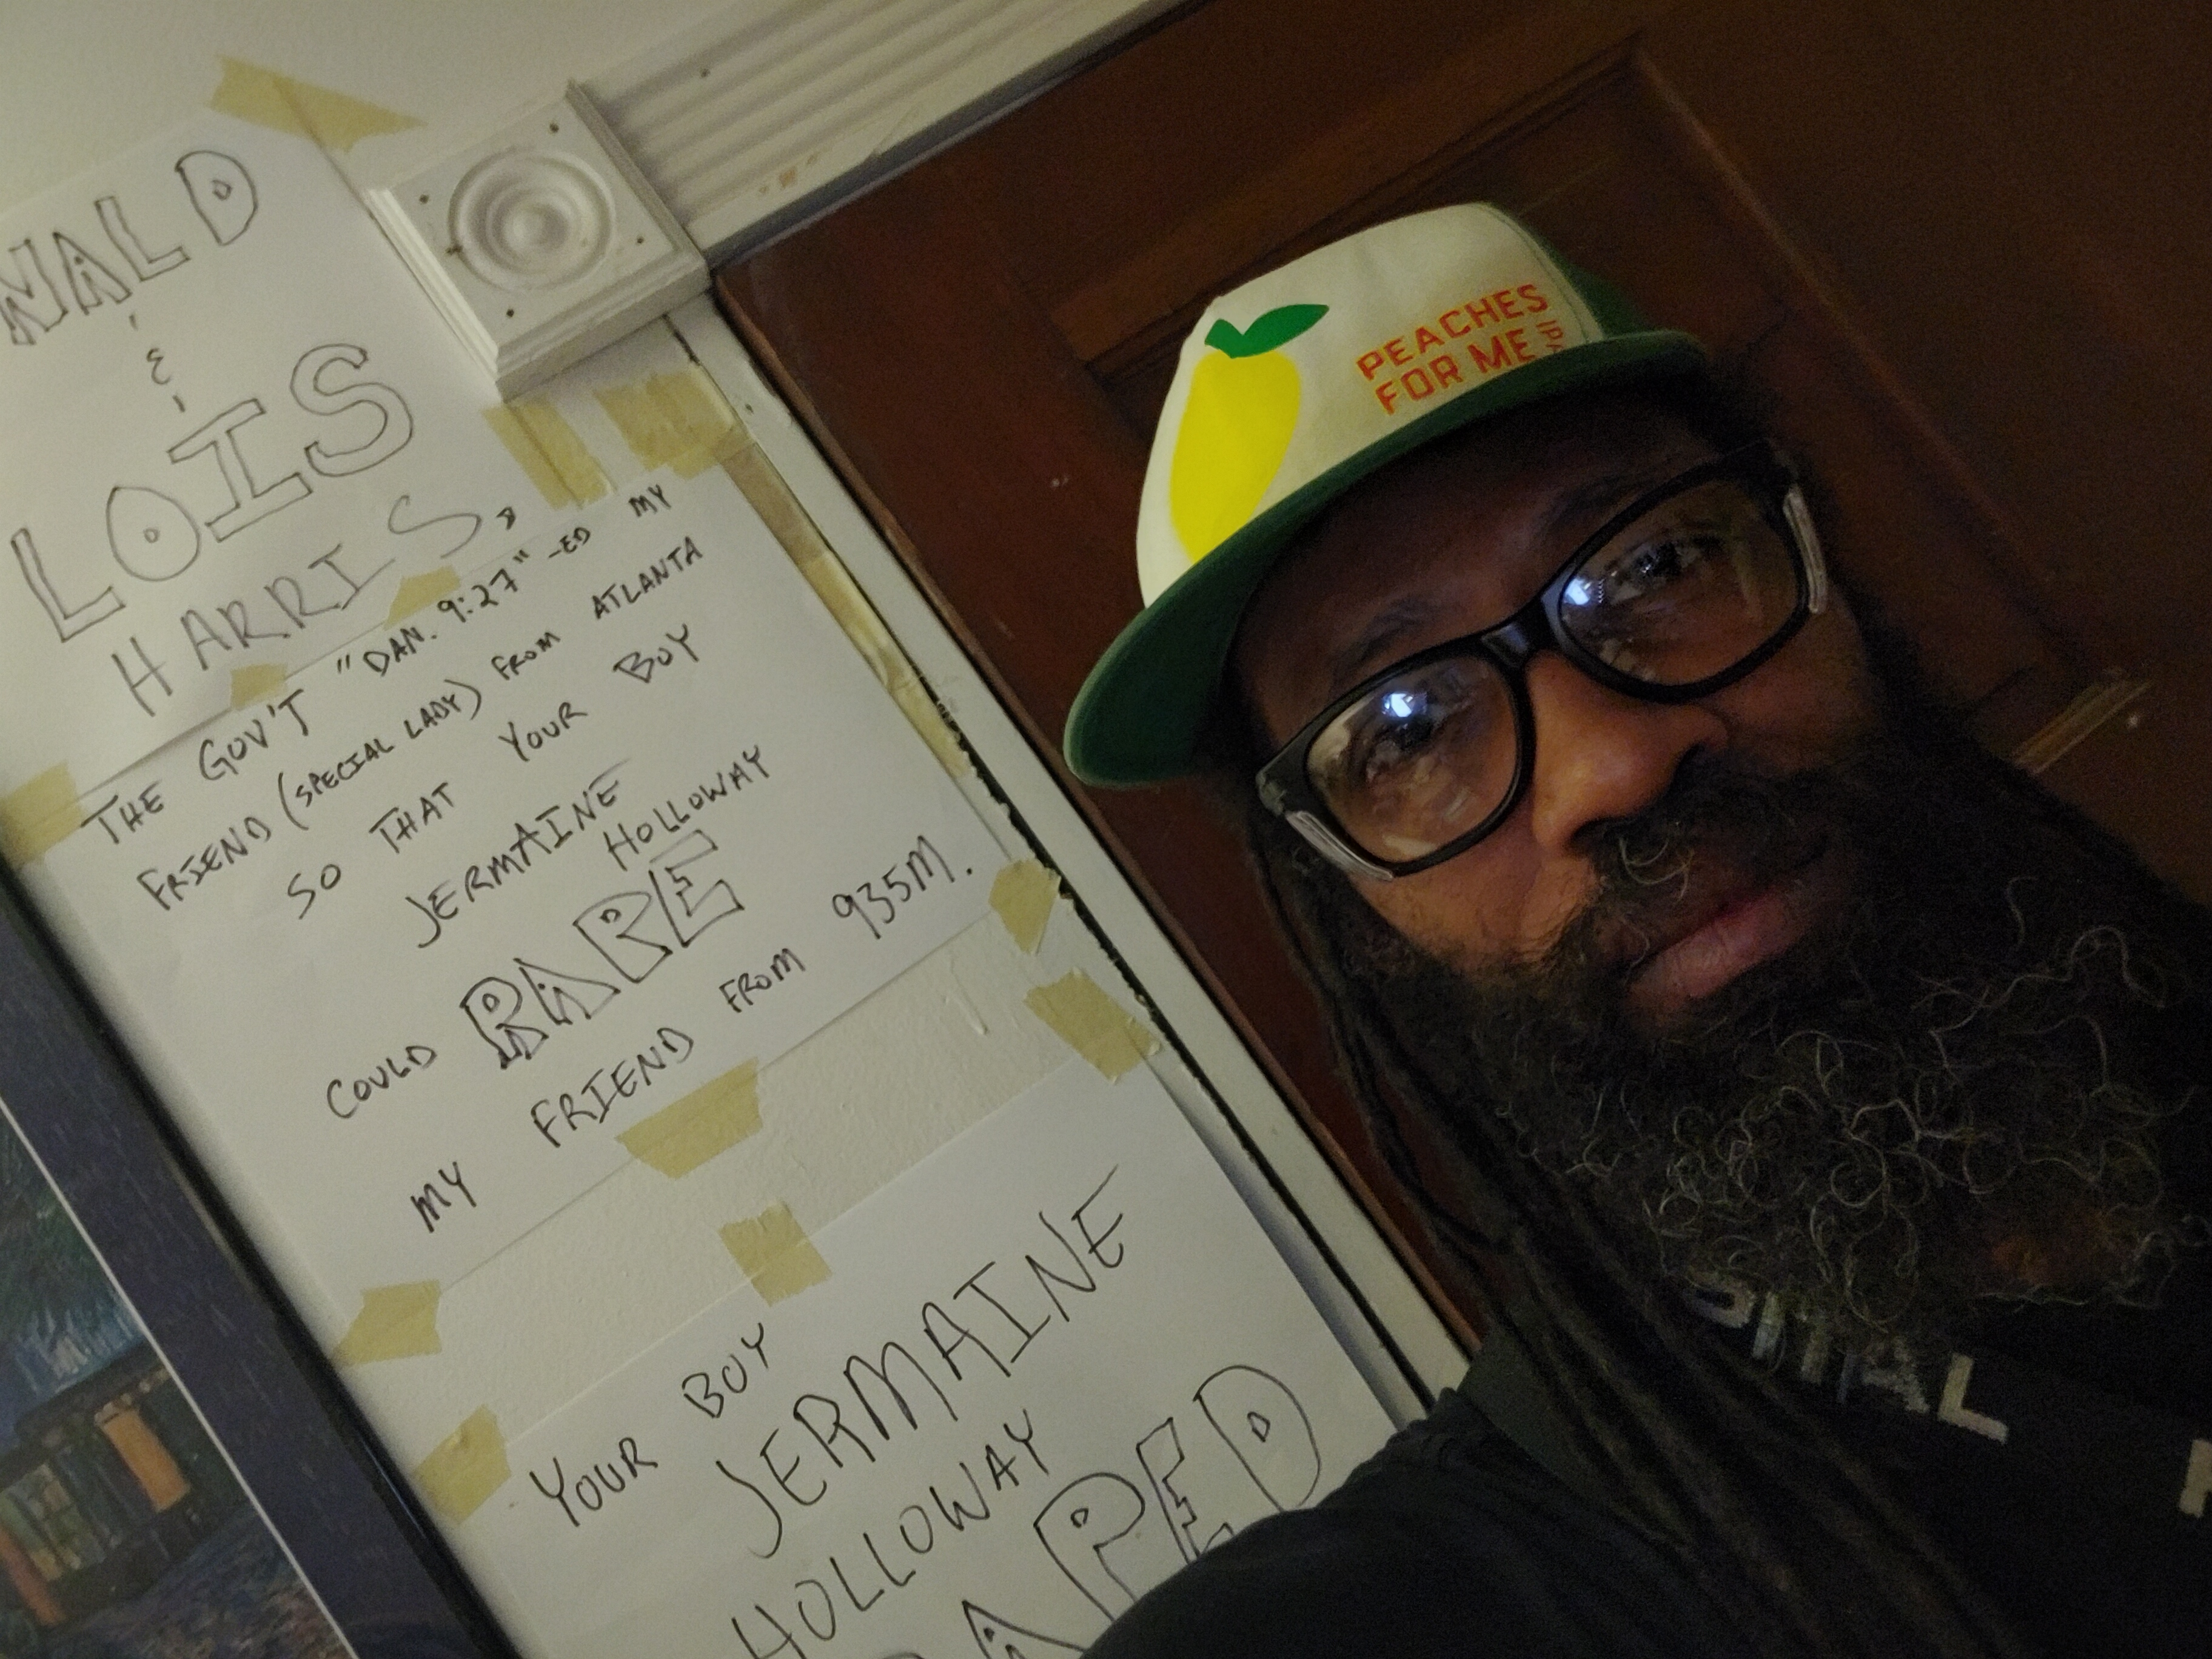 NALD
&
LOIS
HARRIS,
THE GOV'T "DAN. 9:27"-ED MY
FRIEND (SPECIAL LADY) FROM ATLANTA
SO THAT YOUR BOY
JERMAINE
HOLLOWAY
COULD RAPE
MY FRIEND FROM 935M.
YOUR BOY
JERMAINE
HOLLOWAY
RAPED
PEACHES
FOR ME